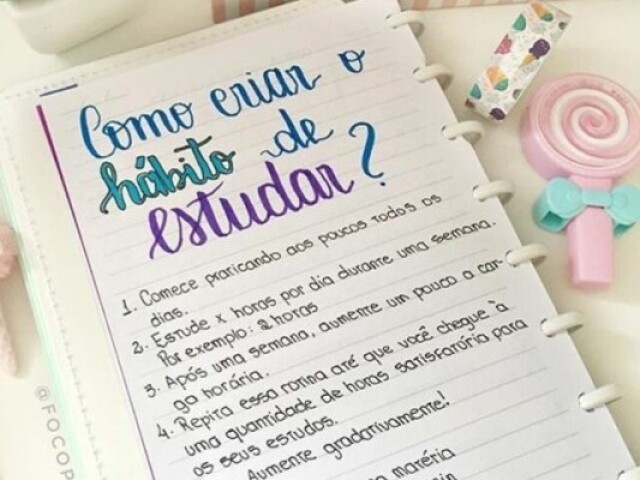 Como criar o
hábito de
estudar?
1. Comece praticando aos poucos todos os
dias.
2. Estude x horas por dia durante uma semana.
Por exemplo: 2 horas
3. Após uma semana, aumente um pouco a car-
ga horária.
4. Repita essa rotina até que você chegue à
uma quantidade de horas satisfatória para
os seus estudos.
Aumente gradativamente!
matéria
@FOCOP